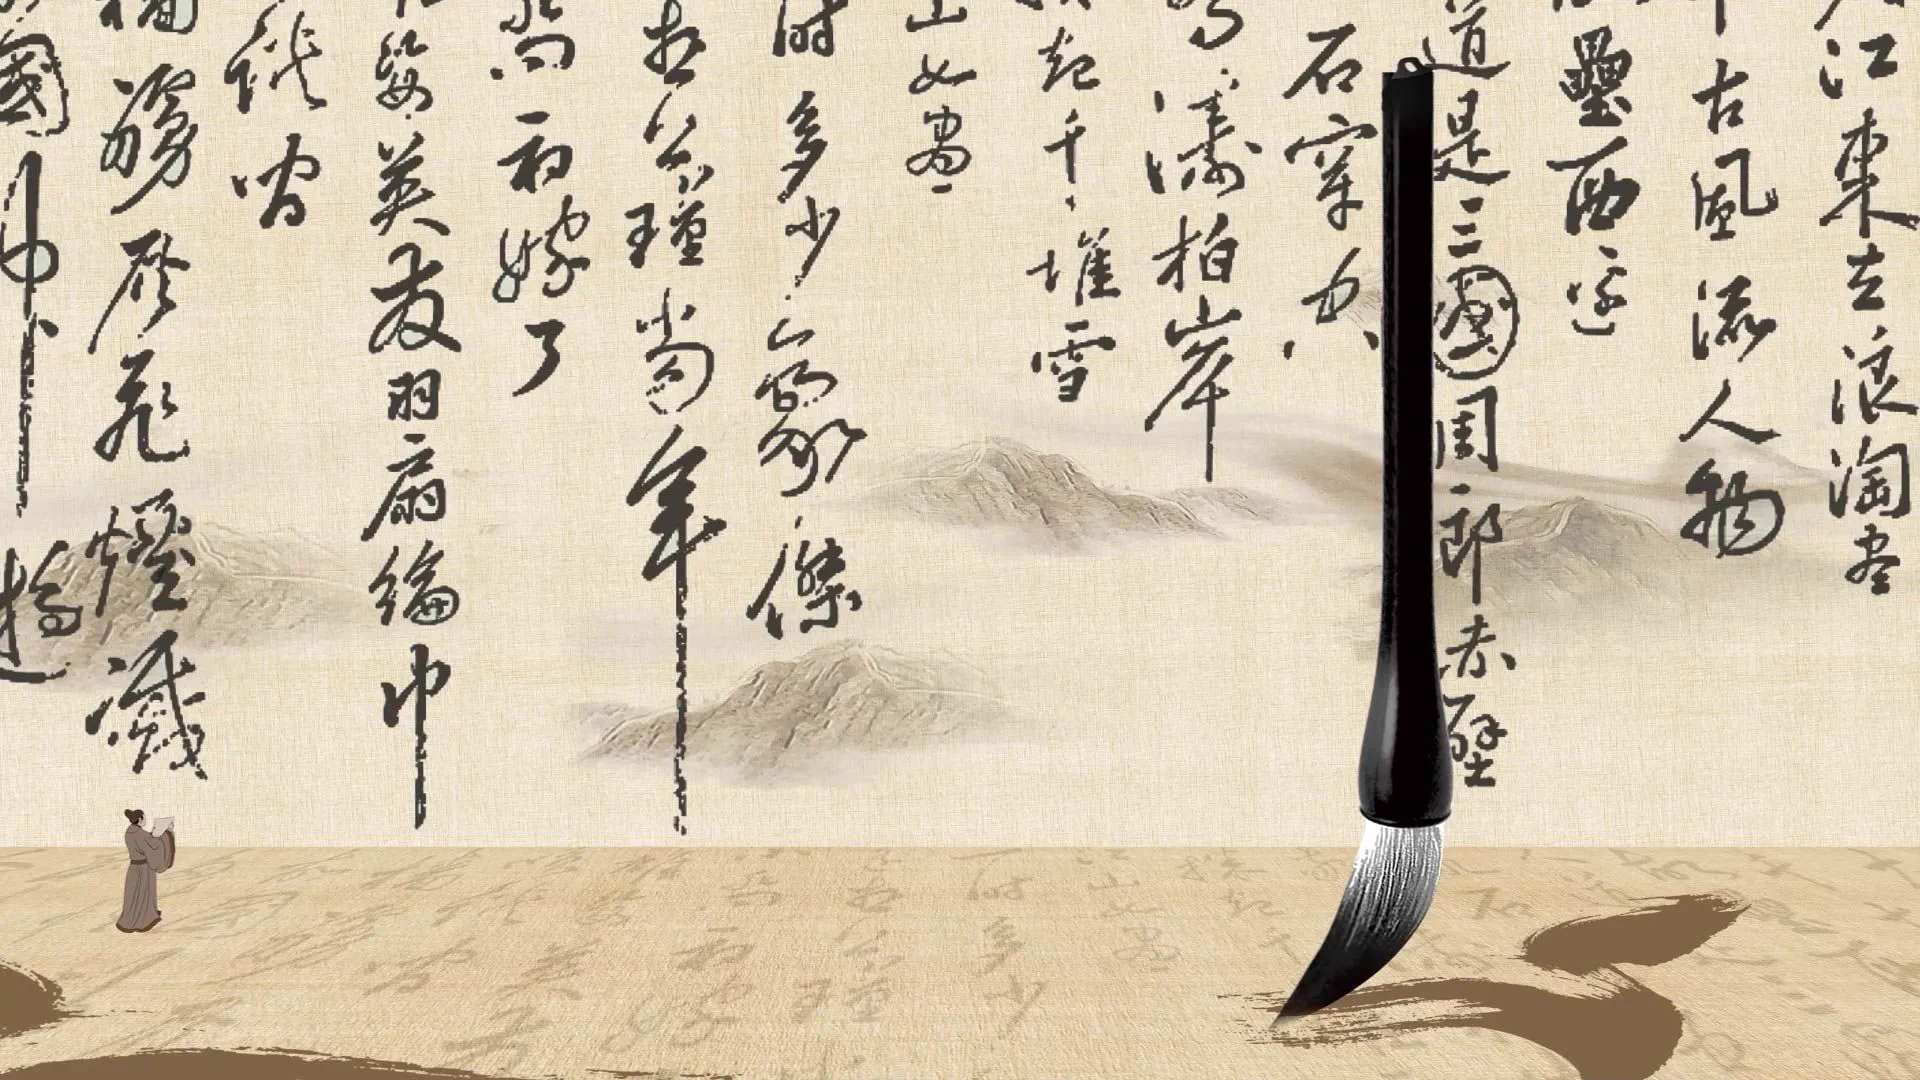 江東去浪淘盡
千古風流人物
壘西邊
道是三國周郎赤壁
石穿空
濤拍岸
起千堆雪
山如畫
時多少豪傑
想公瑾當年
喬初嫁了
姿英發羽扇綸巾
談間
灰飛煙滅
國神遊